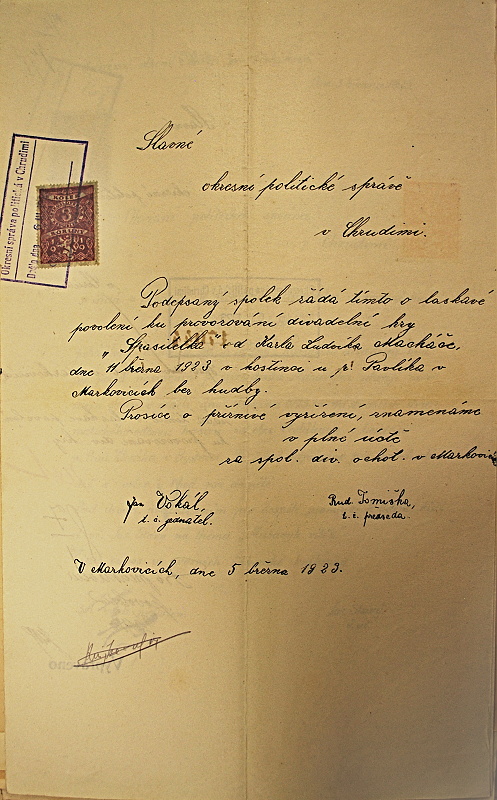 Slavné
okresní politické správě
v Chrudimi.
Okresní správa politická v Chrudimi
Došlo dne
KOLEK
3
KORUNY
Podepsaný spolek žádá tímto o laskavé
povolení ku provozování divadelní hry
" Spasitelka " od Karla Ludvíka Macháče,
dne 11 března 1923 v hostinci u pí Pavlíka v
Markovicích bez hudby.
Prosíce o příznivé vyřízení, znamenáme
v plné úctě
za spol. div. ochot. v Markovic
Jan Vokál,
t. č. jednatel.
Rud. Tomiška,
t. č. předseda.
V Markovicích, dne 5 března 1923.